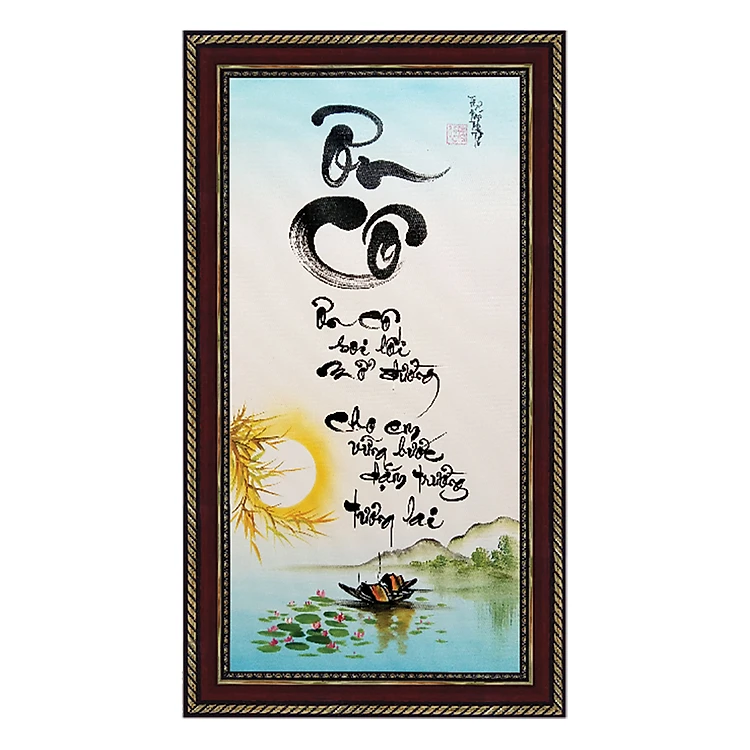 Ơn
Cô
Ơn cô
soi lối
mở đường
Cho em
vững bước
dặm trường
tương lai